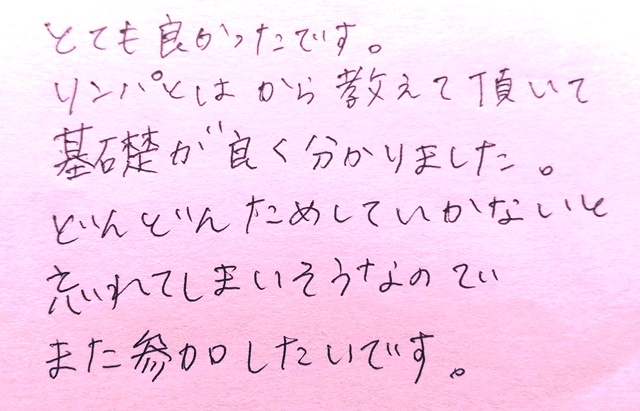 とても良かったです。
リンパとはから教えて頂いて
基礎が良く分かりました。
どんどんためしていかないと
忘れてしまいそうなので
また参加したいです。